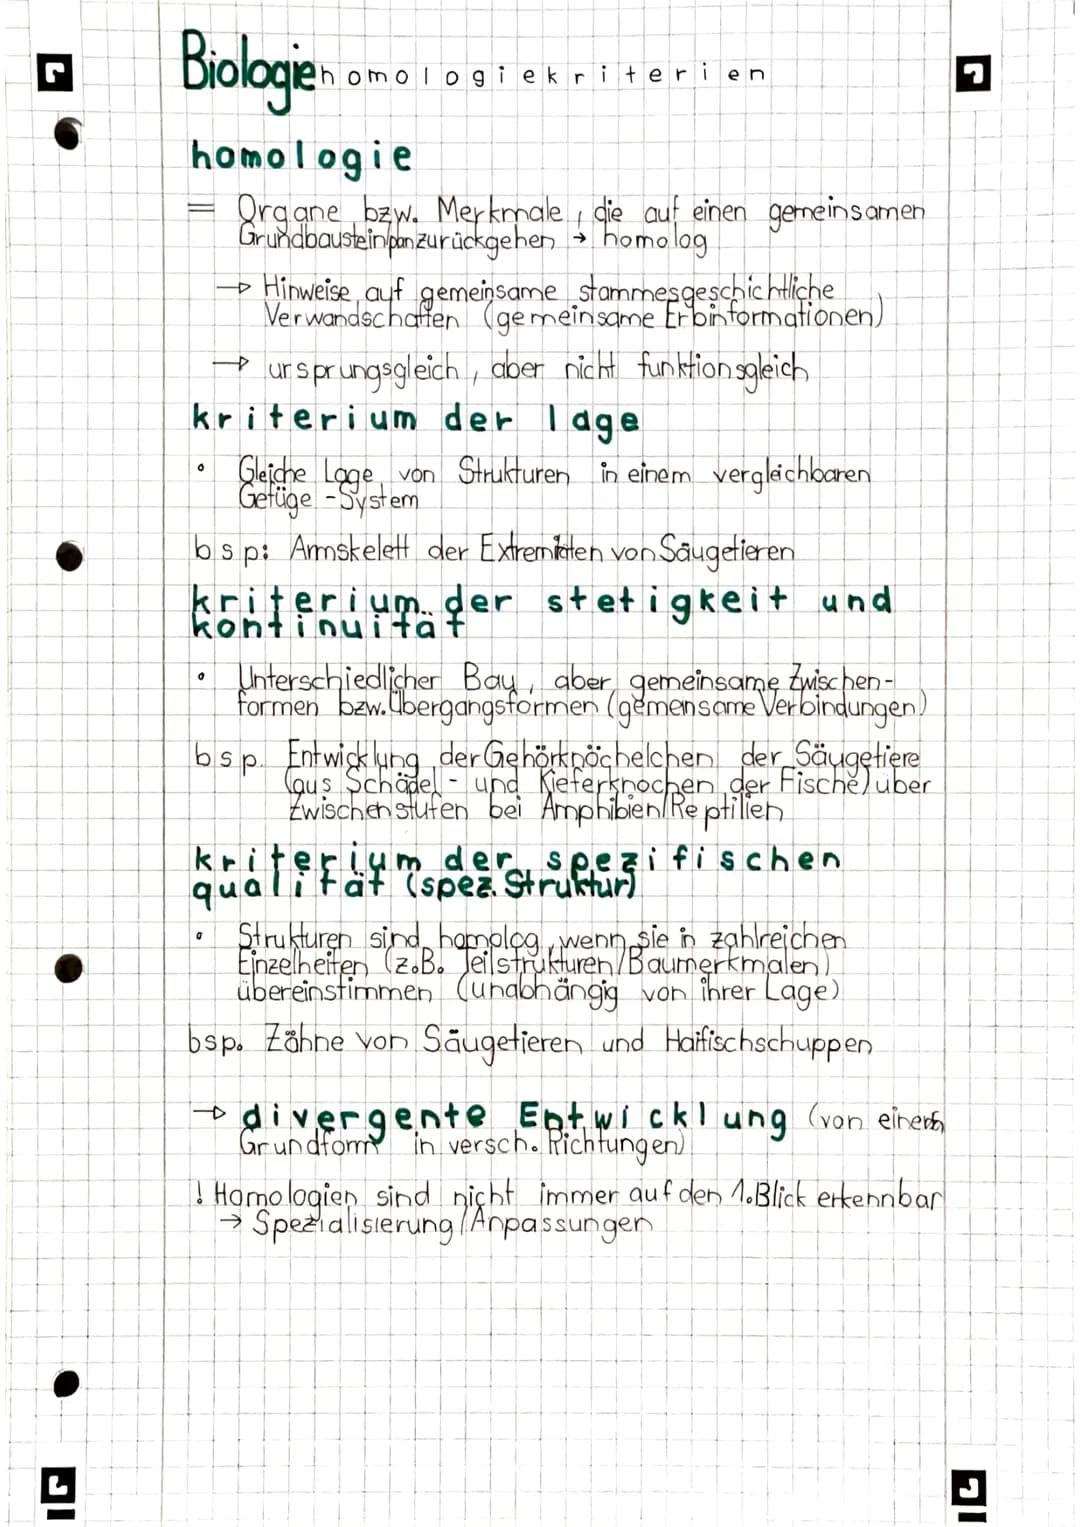 Biologie homologiekriterien
homologie
= Organe bzw. Merkmale, die auf einen gemeinsamen
Grundbaustein/plan zurückgehen → homolog
→ Hinweise auf gemeinsame stammesgeschichtliche
Verwandschaften (gemeinsame Erbinformationen)
→ ursprungsgleich, aber nicht funktionsgleich
kriterium der lage
• Gleiche Lage von Strukturen in einem vergleichbaren
Gefüge-System
bsp: Armskelett der Extremitäten von Säugetieren
kriterium der stetigkeit und
kontinuität
• Unterschiedlicher Bau, aber gemeinsame Zwischen-
formen bzw. Übergangsformen (gemeinsame Verbindungen)
bsp. Entwicklung der Gehörknöchelchen der Säugetiere
(aus Schädel- und Kieferknochen der Fische) über
Zwischenstufen bei Amphibien/Reptilien
kriterium der spezifischen
qualität (spez. Struktur)
• Strukturen sind homolog, wenn sie in zahlreichen
Einzelheiten (z.B. Teilstrukturen/Baumerkmalen)
übereinstimmen (unabhängig von ihrer Lage)
bsp. Zähne von Säugetieren und Haifischschuppen
→ divergente Entwicklung (von einer
Grundform in versch. Richtungen)
! Homologien sind nicht immer auf den 1. Blick erkennbar
→ Spezialisierung/Anpassungen